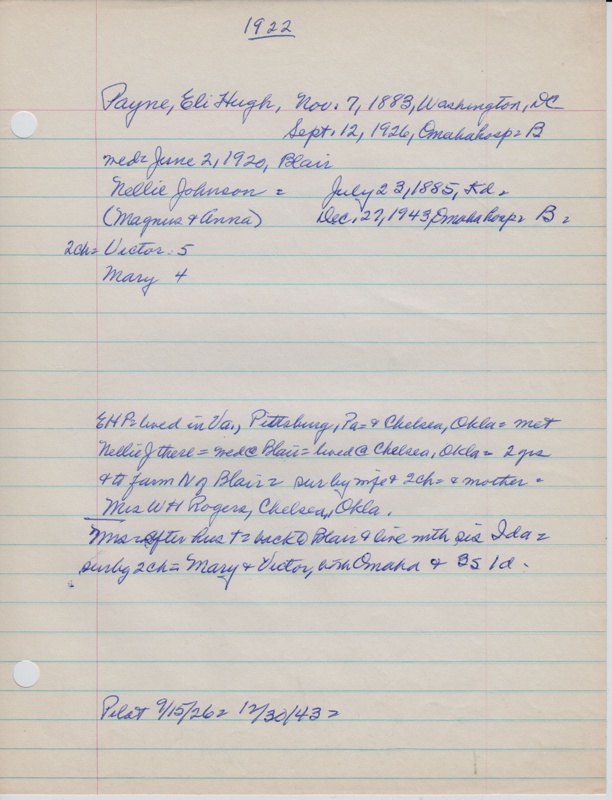 1922
Payne, Eli Hugh, Nov. 7, 1883, Washington, DC
Sept. 12, 1926, Omaha hosp = B
med = June 2, 1920, Blair
Nellie Johnson = July 23, 1885, Kd =
(Magnus & Anna) Dec. 27, 1943, Omaha hosp = B =
2ch = Victor 5
Mary 4
EHP = lived in Va., Pittsburg, Pa = & Chelsea, Okla = met
Nellie J there = med @ Blair = lived @ Chelsea, Okla = 2 yrs
& to farm N of Blair = sur by wife & 2ch = & mother =
Mrs W H Rogers, Chelsea, Okla.
Mrs = after hus + = back to Blair & live with sis Ida =
sur by 2ch = Mary & Victor, both Omaha &
Pilot 9/15/26 = 12/30/43 =